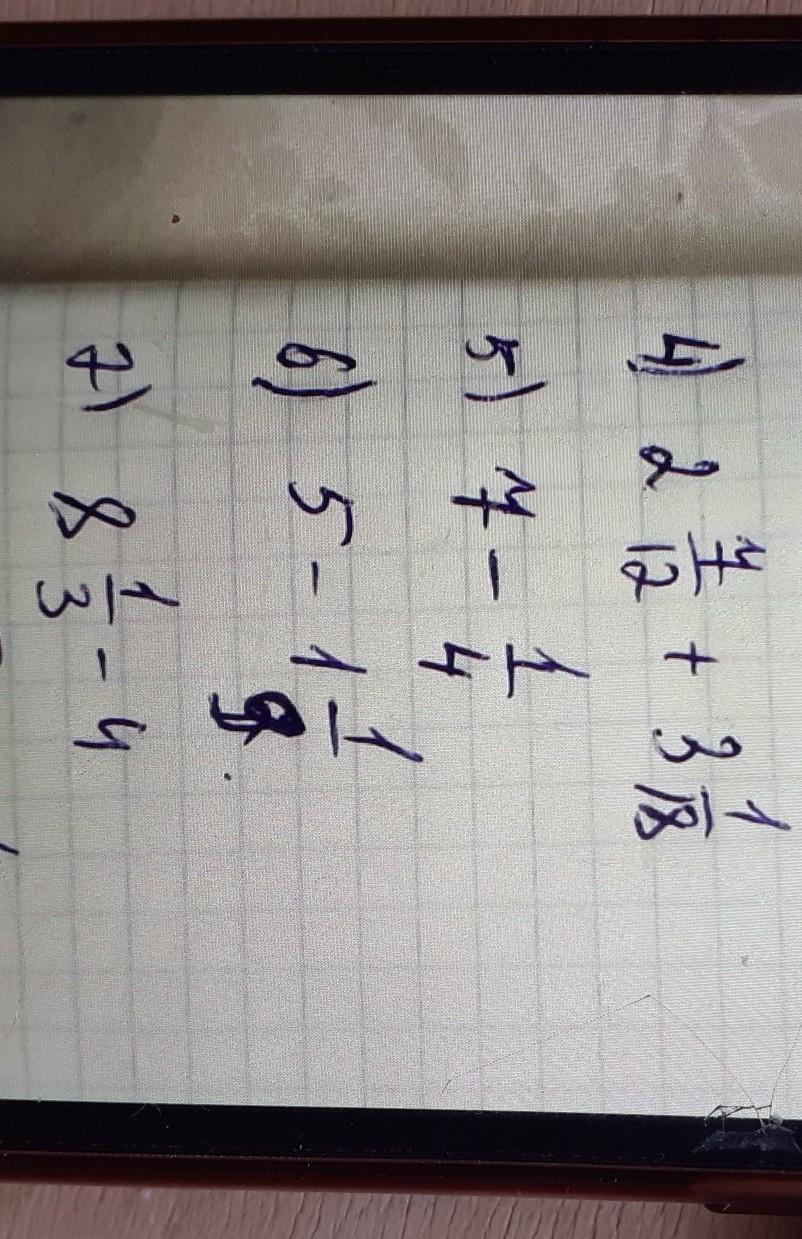 4) 2 7/12 + 3 1/18
5) 7 - 1/4
6) 5 - 1 1/9
7) 8 1/3 - 4